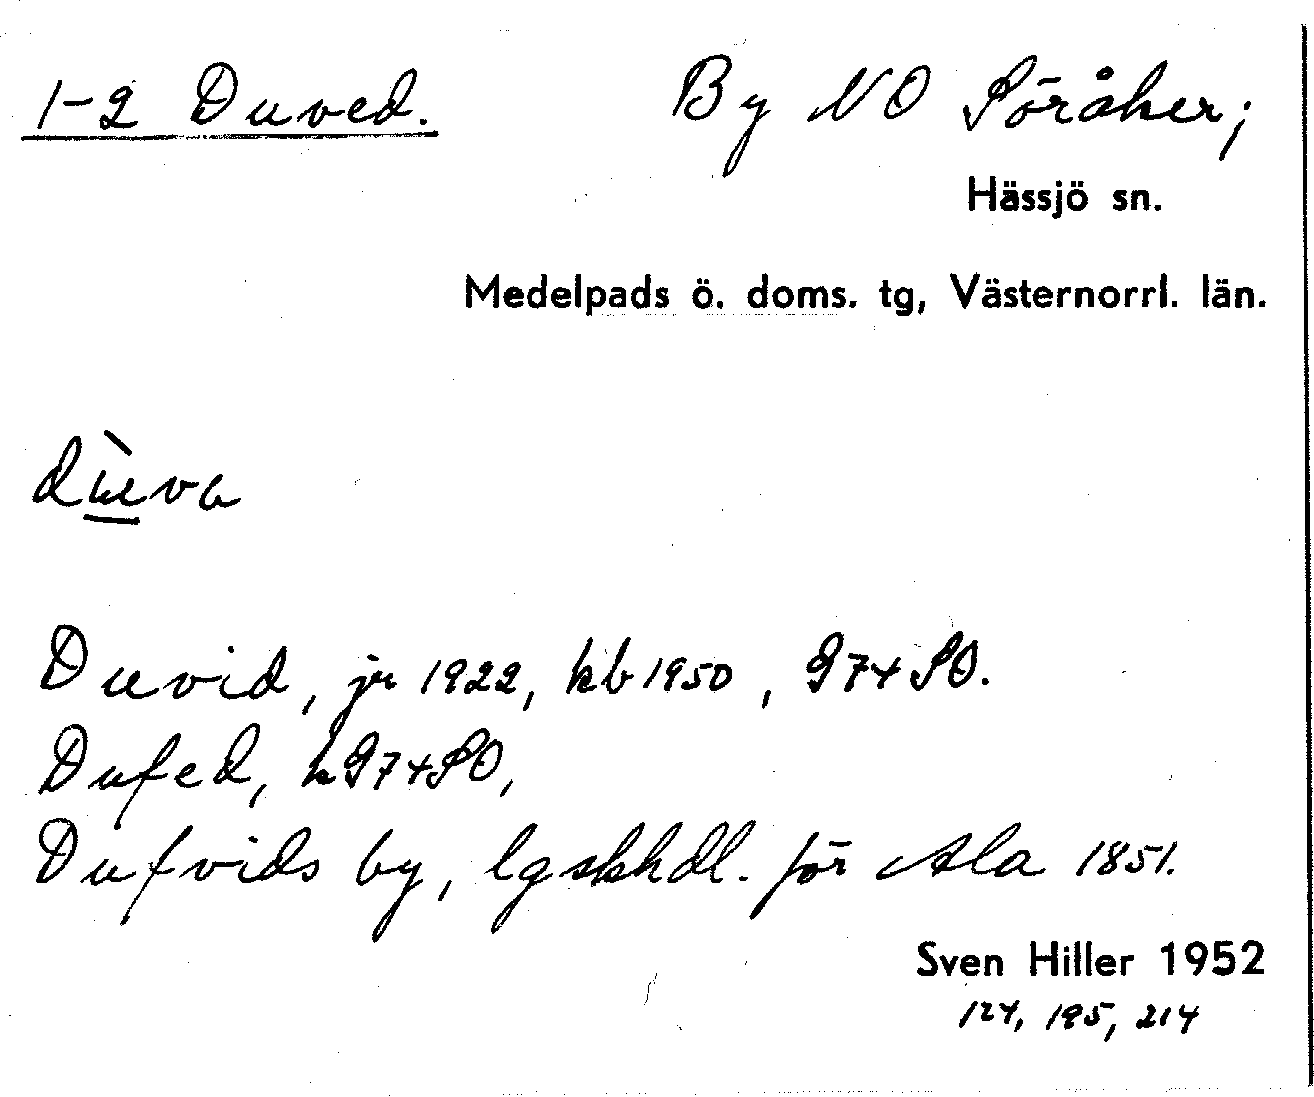 1-2 Duved. By NO Söråker;
Hässjö sn.
Medelpads ö. doms. tg, Västernorrl. län.
dùva
Duvid, jr 1922, kb 1950, G74SO.
Dufed, k G74SO,
Dufvids by, lgskhdl. för Ala 1851.
Sven Hiller 1952
124, 195, 214